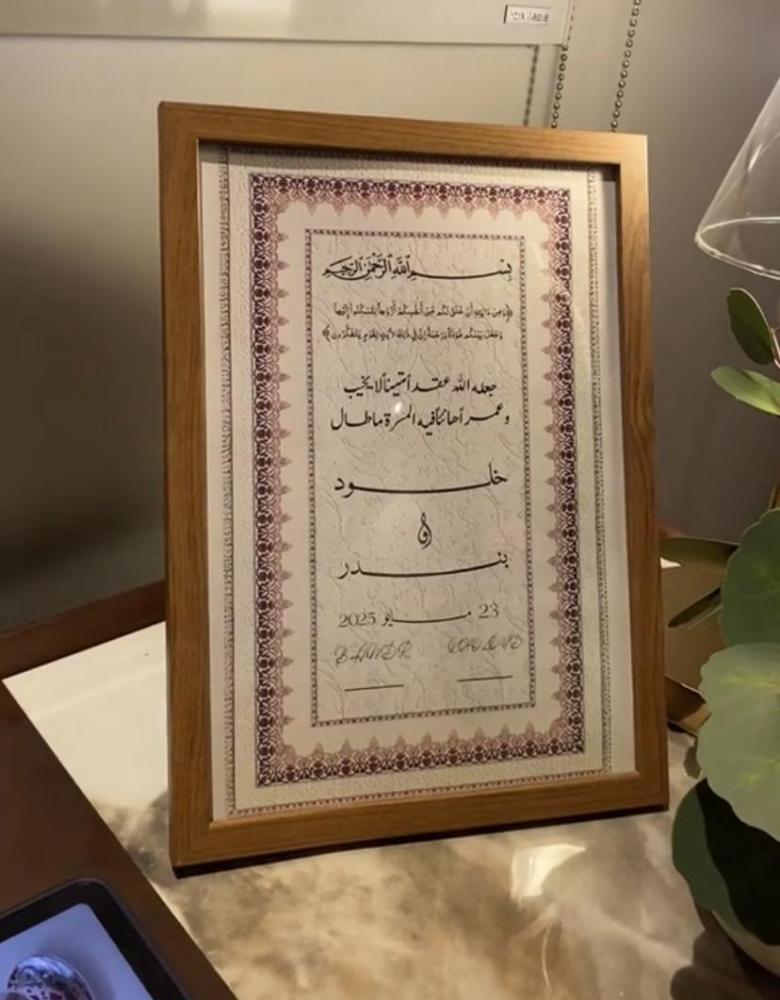 بسم الله الرحمن الرحيم
﴿وَمِنْ ءَايَـٰتِهِۦٓ أَنْ خَلَقَ لَكُم مِّنْ أَنفُسِكُمْ أَزْوَٰجًا لِّتَسْكُنُوٓا۟ إِلَيْهَا
وَجَعَلَ بَيْنَكُم مَّوَدَّةً وَرَحْمَةً إِنَّ فِى ذَٰلِكَ لَـَٔايَـٰتٍ لِّقَوْمٍ يَتَفَكَّرُونَ﴾
جعله الله عقداً متيناً لا يخيب
وعمراً هانئاً فيه المسرة ما طال
خلود
و
بندر
23 مايو 2025